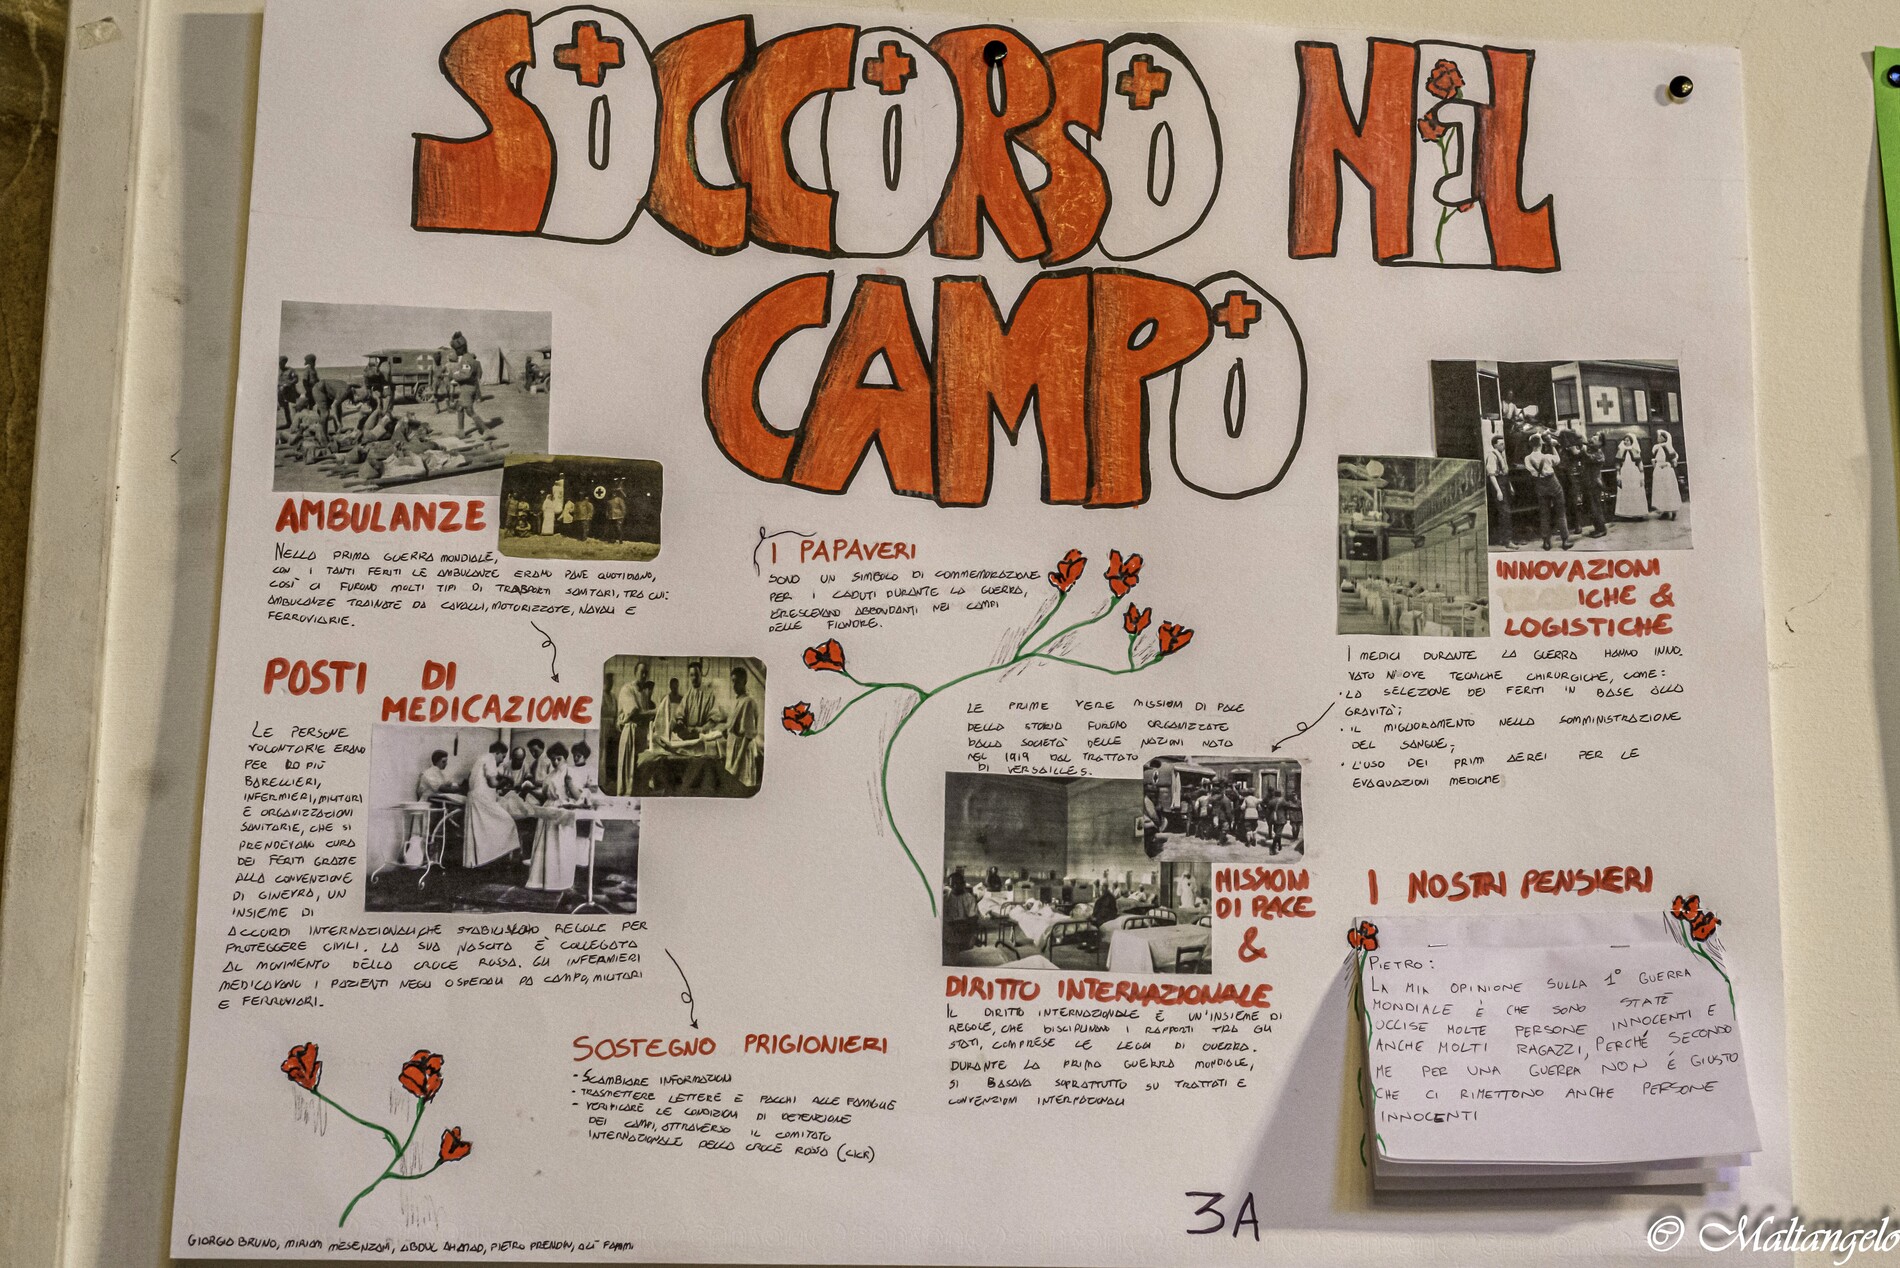 SOCCORSO NEL
CAMPO
AMBULANZE
NELLA PRIMA GUERRA MONDIALE,
CON I TANTI FERITI LE AMBULANZE ERANO PANE QUOTIDIANO,
COSÌ CI FURONO MOLTI TIPI DI TRASPORTI SANITARI, TRA CUI:
AMBULANZE TRAINATE DA CAVALLI, MOTORIZZATE, NAVALI E
FERROVIARIE.
POSTI DI
MEDICAZIONE
LE PERSONE
VOLONTARIE ERANO
PER LO PIÙ
BARELLIERI,
INFERMIERI, MILITARI
E ORGANIZZAZIONI
SANITARIE, CHE SI
PRENDEVANO CURA
DEI FERITI GRAZIE
ALLA CONVENZIONE
DI GINEVRA, UN
INSIEME DI
ACCORDI INTERNAZIONALI CHE STABILIVANO REGOLE PER
PROTEGGERE CIVILI. LA SUA NASCITA È COLLEGATA
AL MOVIMENTO DELLA CROCE ROSSA. GLI INFERMIERI
MEDICAVANO I PAZIENTI NEGLI OSPEDALI DA CAMPO, MILITARI
E FERROVIARI.
SOSTEGNO PRIGIONIERI
- SCAMBIARE INFORMAZIONI
- TRASMETTERE LETTERE E PACCHI ALLE FAMIGLIE
- VERIFICARE LE CONDIZIONI DI DETENZIONE
DEI CAMPI, ATTRAVERSO IL COMITATO
INTERNAZIONALE DELLA CROCE ROSSA (CICR)
I PAPAVERI
SONO UN SIMBOLO DI COMMEMORAZIONE
PER I CADUTI DURANTE LA GUERRA,
CRESCEVANO ABBONDANTI NEI CAMPI
DELLE FIANDRE.
LE PRIME VERE MISSIONI DI PACE
DELLA STORIA FURONO ORGANIZZATE
DALLA SOCIETÀ DELLE NAZIONI NATA
NEL 1919 DAL TRATTATO
DI VERSAILLES.
MISSIONI
DI PACE
&
DIRITTO INTERNAZIONALE
IL DIRITTO INTERNAZIONALE È UN'INSIEME DI
REGOLE, CHE DISCIPLINANO I RAPPORTI TRA GLI
STATI, COMPRESE LE LEGGI DI GUERRA.
DURANTE LA PRIMA GUERRA MONDIALE,
SI BASAVA SOPRATTUTTO SU TRATTATI E
CONVENZIONI
INNOVAZIONI
ICHE &
LOGISTICHE
I MEDICI DURANTE LA GUERRA HANNO INNO-
VATO NUOVE TECNICHE CHIRURGICHE, COME:
· LA SELEZIONE DEI FERITI IN BASE ALLA
GRAVITÀ;
· IL MIGLIORAMENTO NELLA SOMMINISTRAZIONE
DEL SANGUE;
· L'USO DEI PRIMI AEREI PER LE
EVAQUAZIONI MEDICHE
I NOSTRI PENSIERI
PIETRO:
LA MIA OPINIONE SULLA 1° GUERRA
MONDIALE È CHE SONO STATE
UCCISE MOLTE PERSONE INNOCENTI E
ANCHE MOLTI RAGAZZI, PERCHÉ SECONDO
ME PER UNA GUERRA NON È GIUSTO
CHE CI RIMETTONO ANCHE PERSONE
INNOCENTI
3A
GIORGIA BRUNO, MIRIAM MESENZANI, ABDUL AHAMAD, PIETRO
© Maltangelo